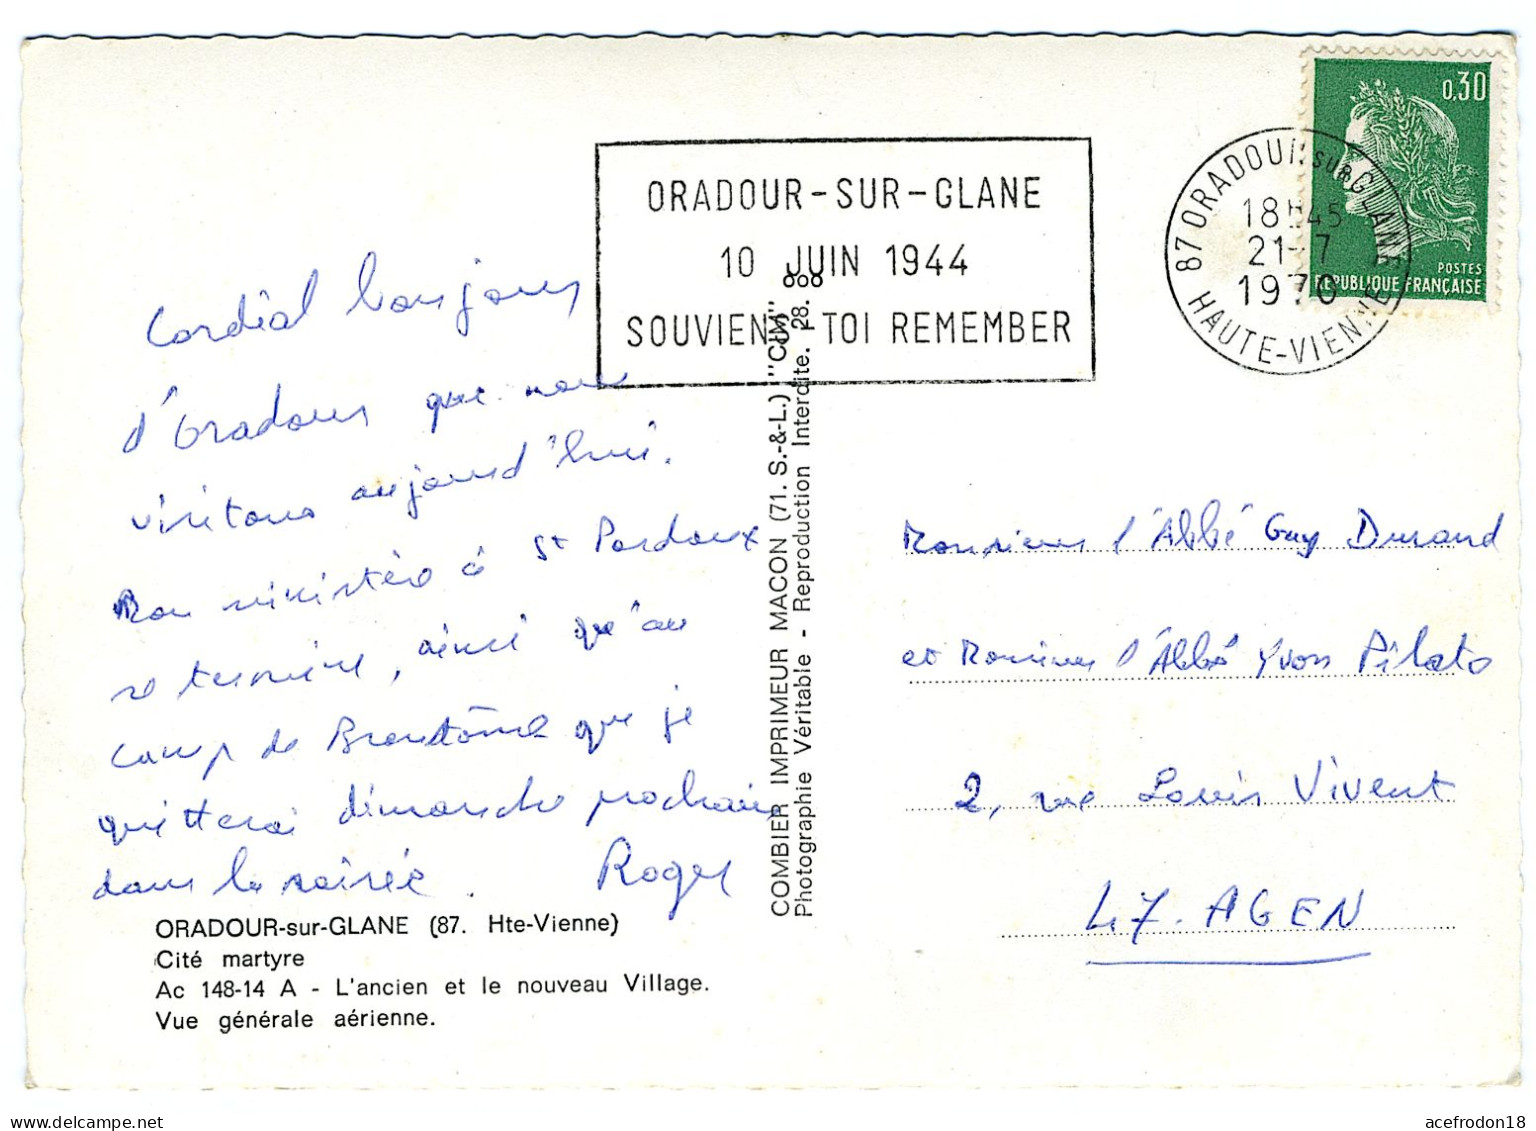 0,30
POSTES
REPUBLIQUE FRANÇAISE
87 ORADOUR SUR GLANE
18H45
21-7
1970
HAUTE-VIENNE
ORADOUR-SUR-GLANE
10 JUIN 1944
SOUVIENS TOI REMEMBER
Cordial bonjour
d'Oradour que nous
visitons aujourd'hui.
Mon ministère à St Pardoux
se termine, ainsi qu'au
camp de Brantôme que je
quitterai dimanche prochain
dans la soirée. Roger
ORADOUR-sur-GLANE (87. Hte-Vienne)
Cité martyre
Ac 148-14 A - L'ancien et le nouveau Village.
Vue générale aérienne.
COMBIER IMPRIMEUR MACON (71. S.-&-L.) "CIM"
Photographie Véritable - Reproduction Interdite. 28.
Monsieur l'Abbé Guy Durand
et Monsieur l'Abbé Yvon Pilato
2, rue Louis Vivent
47. AGEN
acefrodon18